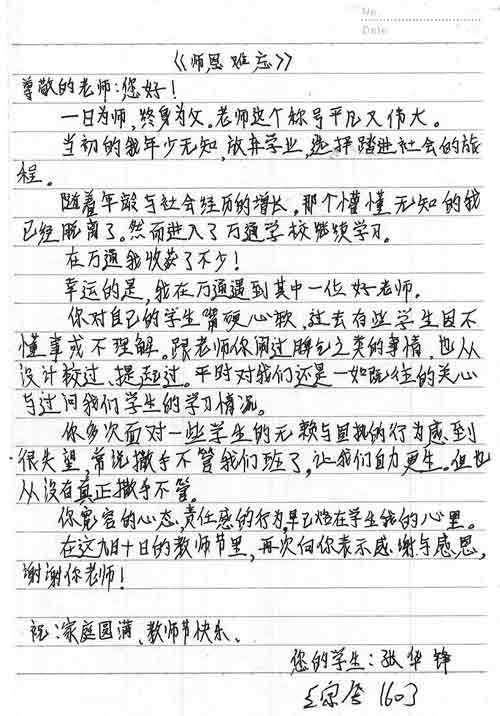 No.
Date
《师恩难忘》
尊敬的老师:您好!
一日为师,终身为父。老师这个称号平凡又伟大。
当初的我年少无知,放弃学业,选择踏进社会的旅
程。
随着年龄与社会经历的增长,那个懵懂无知的我
已经脱离了。然而进入了万通学校继续学习。
在万通我收获了不少!
幸运的是,我在万通遇到其中一位好老师。
你对自己的学生嘴硬心软,过去有些学生因不
懂事或不理解。跟老师你闹过脾气之类的事情,也从
没计较过、提起过。平时对我们还是一如既往的关心
与过问我们学生的学习情况。
你多次面对一些学生的无赖与固执的行为感到
很失望,常说撒手不管我们班了,让我们自力更生。但也
从没有真正撒手不管。
你宽容的心态、责任感的行为,早已烙在学生我的心里。
在这九月十日的教师节里,再次向你表示感谢与感恩,
谢谢你老师!
祝:家庭圆满、教师节快乐、
您的学生:张华锋
1603